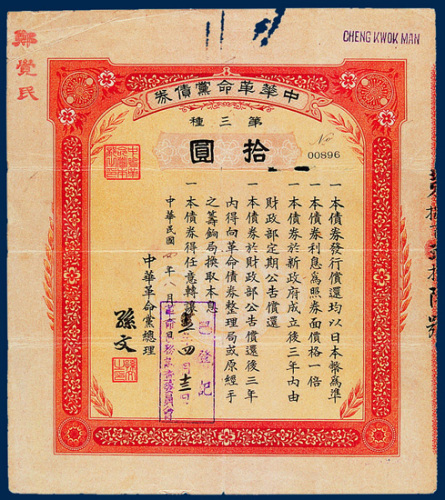 鄭覺民
CHENG KWOK MAN
中華革命黨債券
第三種
拾圓
No 00896
一本債券發行償還均以日本幣為準
一本債券利息為照券面價格一倍
一本債券於新政府成立後三年內由
財政部定期公告償還
一本債券於財政部公告償還後三年
內得向革命債券整理局或原經手
之籌餉局換取本息
一本債券得任意轉讓
中華民國四年八月
中華革命黨總理
孫文
已登記